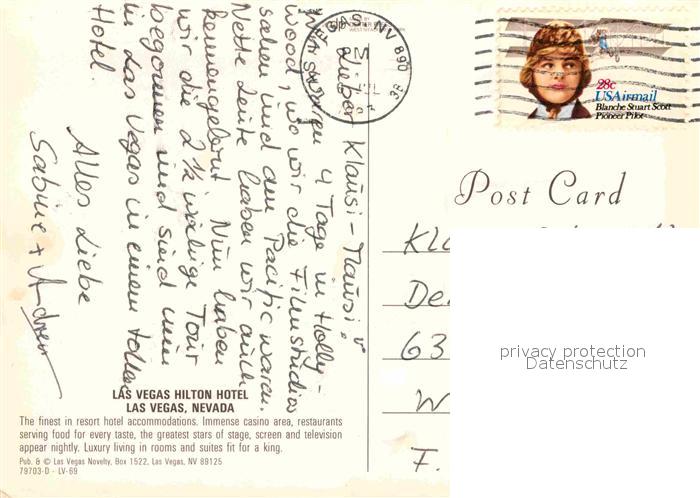 Lieber Klausi-Mausi,
Wir waren 4 Tage in Holly-
wood, wo wir die Filmstudios
sahen und den Pacific waren.
Nette Leute haben wir auch
kennengelernt. Nun haben
wir die 2½ wöchige Tour
begonnen und sind nun
in Las Vegas in einem tollen
Hotel.
Alles Liebe
Sabine + Andreas
VEGAS NV 890
28c
USAirmail
Blanche Stuart Scott
Pioneer Pilot
Post Card
63
F.
privacy protection
Datenschutz
LAS VEGAS HILTON HOTEL
LAS VEGAS, NEVADA
The finest in resort hotel accommodations. Immense casino area, restaurants
serving food for every taste, the greatest stars of stage, screen and television
appear nightly. Luxury living in rooms and suites fit for a king.
Pub. & © Las Vegas Novelty, Box 1522, Las Vegas, NV 89125
79703-D - LV-69